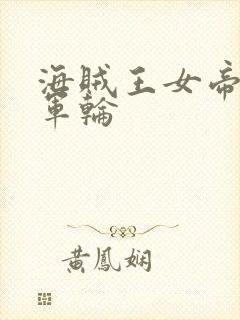 海賊王女帝
軍輪
黃鳳嫻